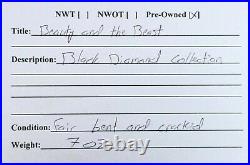 NWT [ ] NWOT [ ] Pre-Owned [X]
Title: Beauty and the Beast
Description: Black Diamond Collection
Condition: Fair bent and cracked
Weight: 7 oz